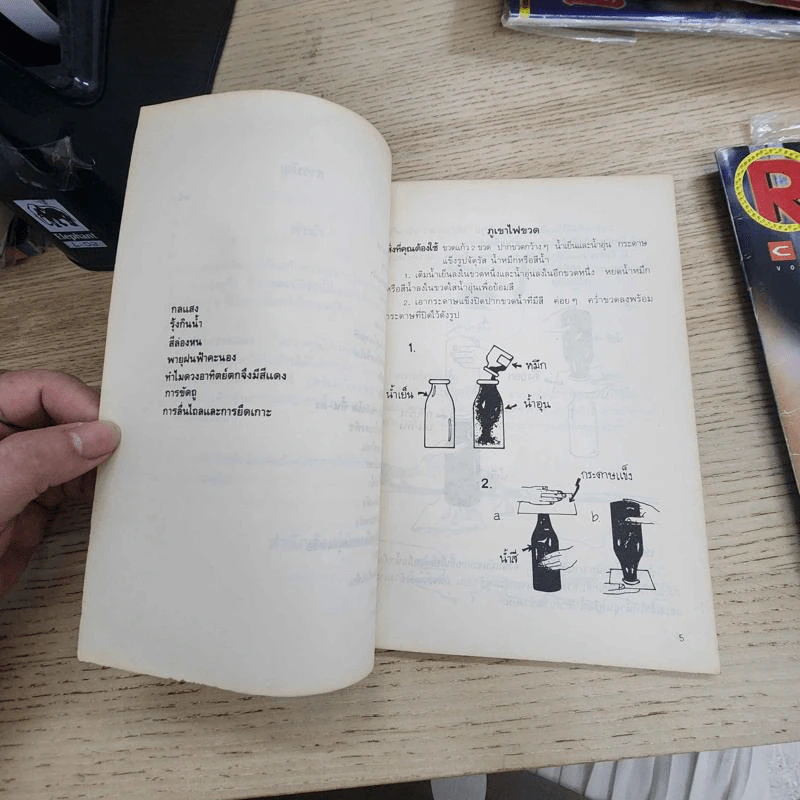 กลแสง
รุ้งกินน้ำ
สีล่องหน
พายุฝนฟ้าคะนอง
ทำไมดวงอาทิตย์ตกจึงมีสีแดง
การขัดถู
การลื่นไถลและการยึดเกาะ
ภูเขาไฟขวด
สิ่งที่คุณต้องใช้ ขวดแก้ว 2 ขวด ปากขวดกว้างๆ น้ำเย็นและน้ำอุ่น กระดาษ
แข็งรูปจัตุรัส น้ำหมึกหรือสีน้ำ
1. เติมน้ำเย็นลงในขวดหนึ่งและน้ำอุ่นลงในอีกขวดหนึ่ง หยดน้ำหมึก
หรือสีน้ำลงในขวดใส่น้ำอุ่นเพื่อย้อมสี
2. เอากระดาษแข็งปิดปากขวดน้ำที่มีสี ค่อยๆ คว่ำขวดลงพร้อม
กระดาษที่ปิดไว้ดังรูป
1.
หมึก
น้ำเย็น
น้ำอุ่น
2.
กระดาษแข็ง
a.
b.
น้ำสี
5
Elephant
R
VO